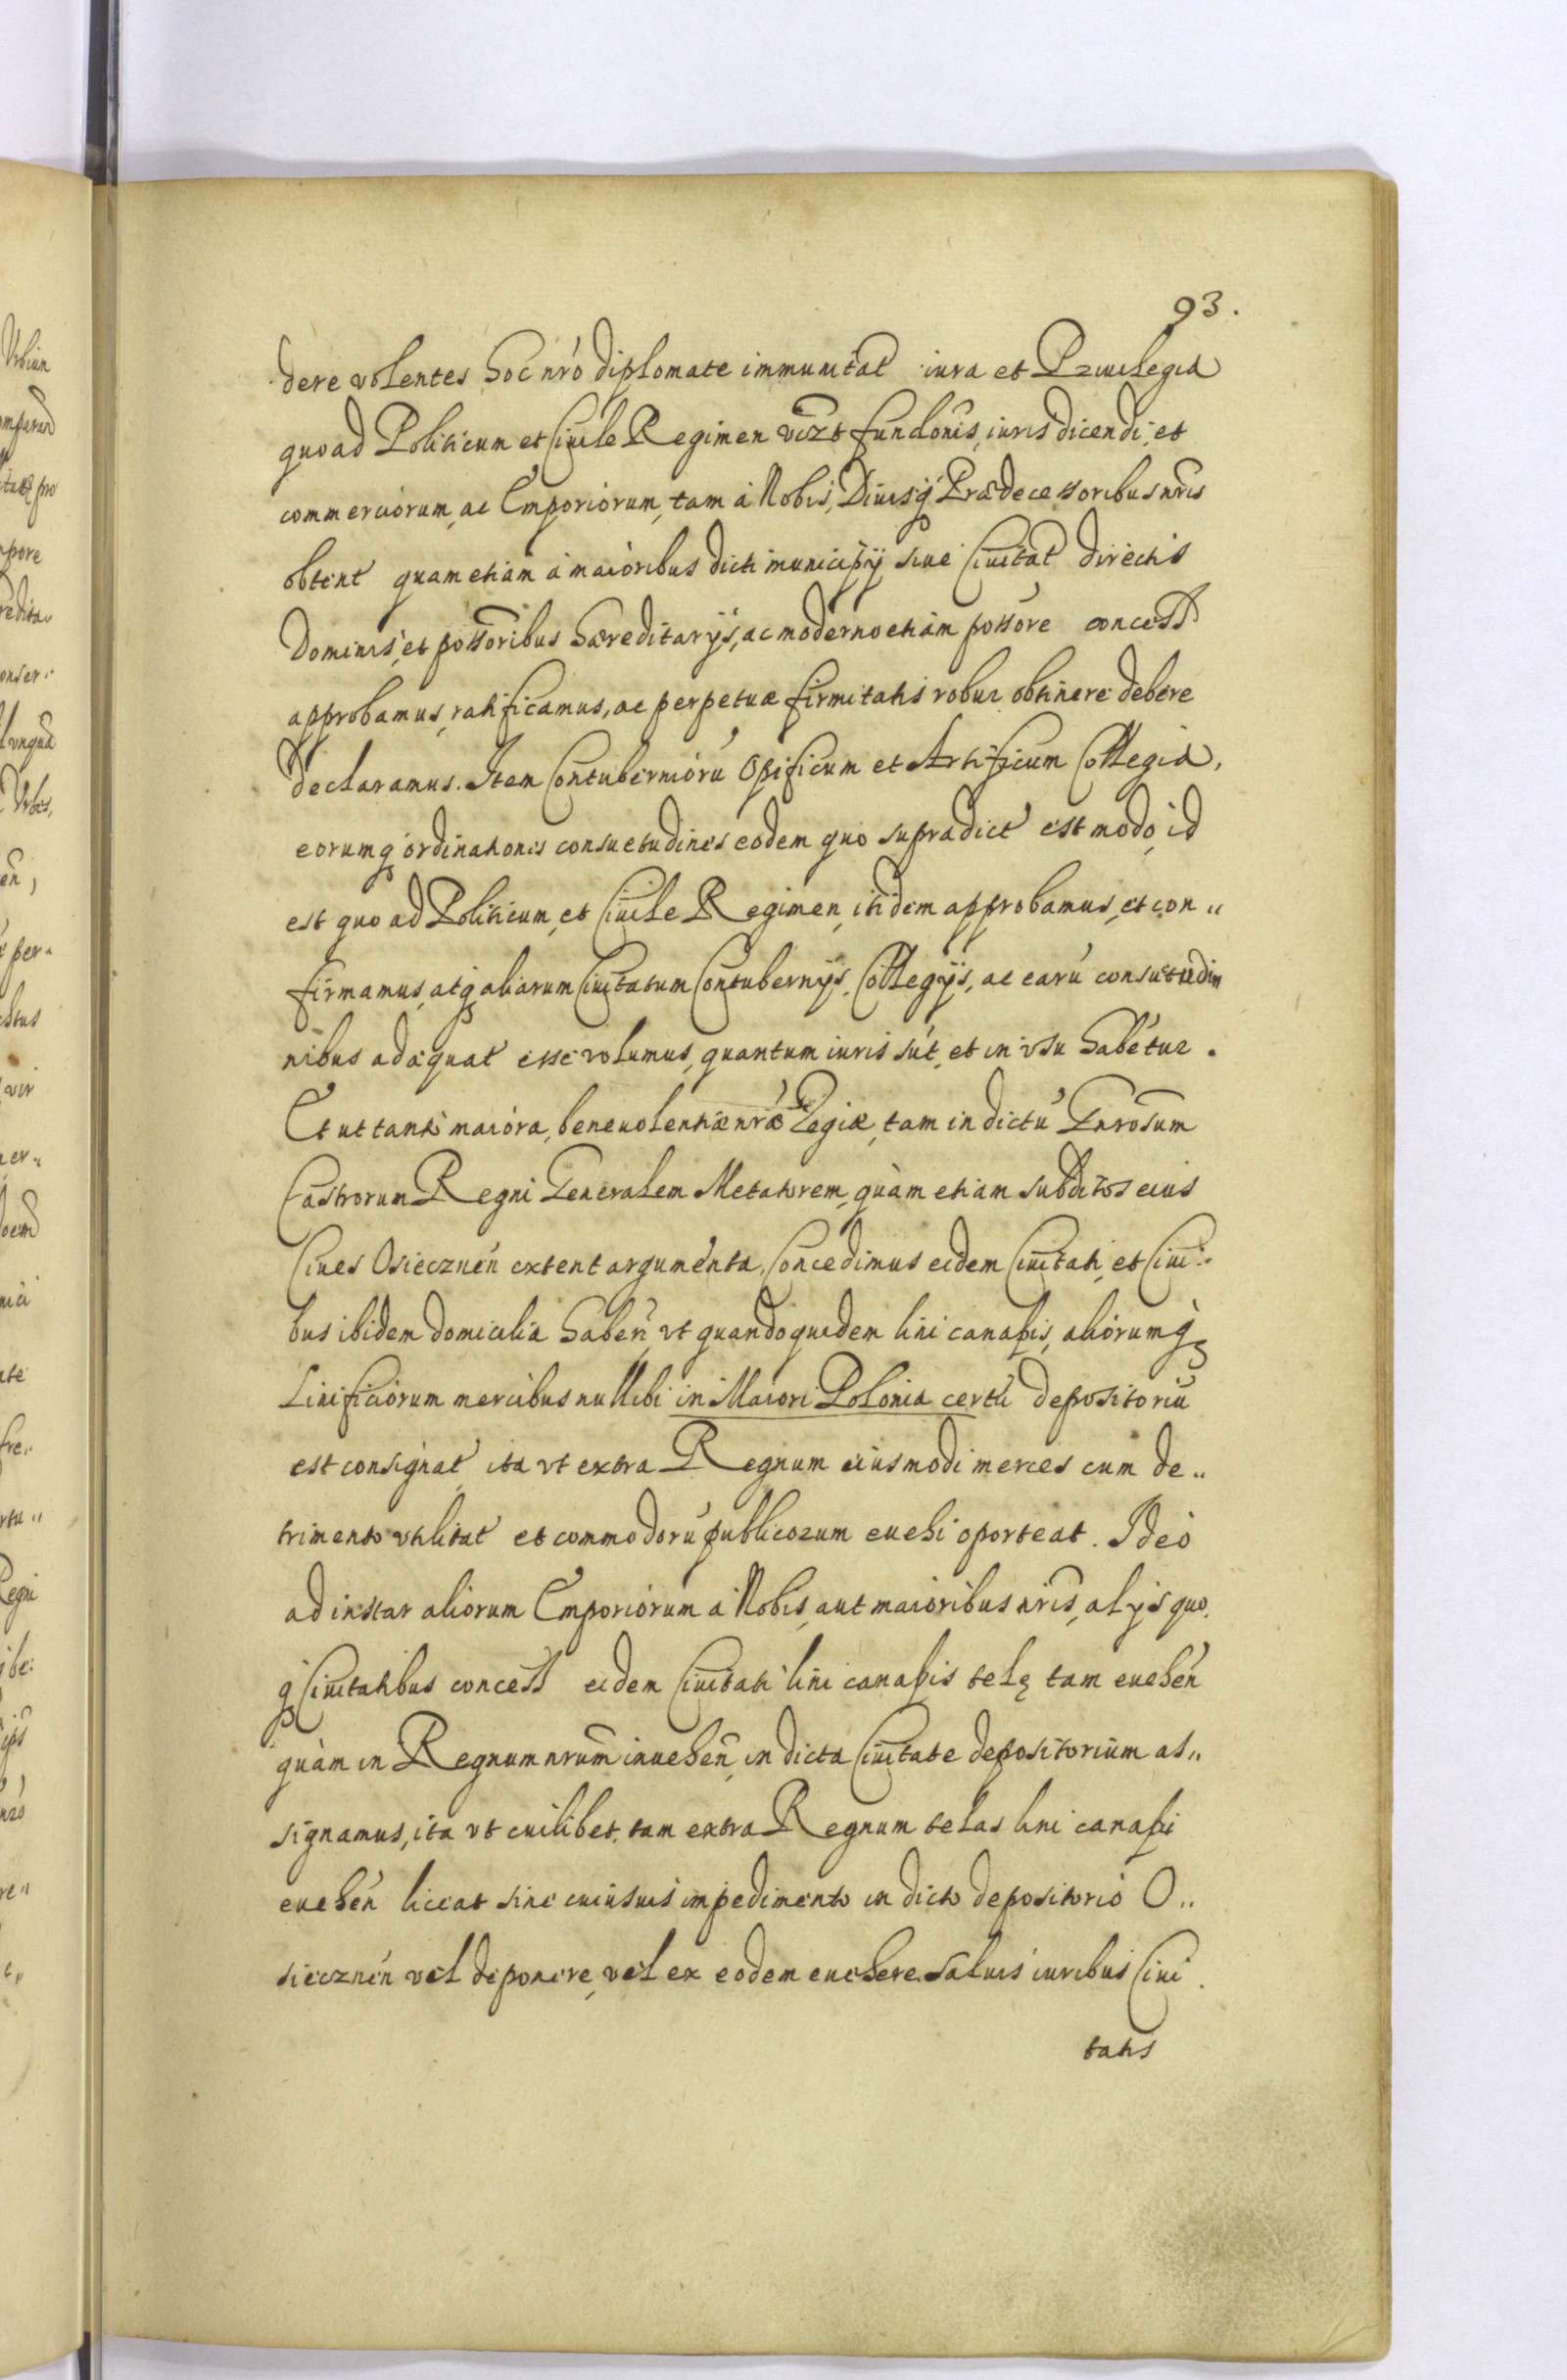 93.
dere volentes hoc nró diplomate immunitat iura et Priuilegia
quoad Politicum et Ciuile Regimen vizt functionis, iuris dicendi, et
commerciorum, ac Emporiorum, tam à Nobis, Diuisq́ Prædecessoribus nris
obtent quam etiam à maioribus dicti municipÿ siue Ciuitat directis
Dominis, et possoribus hæreditarÿs, ac moderno etiam possore concess
approbamus, ratificamus, ac perpetuæ firmitatis robur obtinere debere
declaramus. Item Contubernioru Opificum et Artificum Collegia,
eorumq ordinationes consuetudines eodem quo supradict est modo, id
est quo ad Politicum, et Ciuile Regimen, itidem approbamus, et con„
firmamus, atq aliarum Ciuitatum Contubernÿs, Collegÿs, ac earú consuetudin
nibus adæquat esse volumus, quantum iuris sút, et in vsu habétur.
Et ut tantò maiora, beneuolentiæ nræ Regiæ, tam in dictú Gnrosum
Castrorum Regni Generalem Metatorem, quàm etiam subditos eius
Ciues Osiecznén extent arguménta, Concedimus eidem Ciuitati, et Ciui„
bus ibidem domicilia habeń, vt quandoquidem lini canapis, aliorumq̀
Linificiorum mercibus nullibi in Maiori Polonia certú depositoriú
est consignat, ita vt extra Regnum eiusmodi merces cum de„
trimento vtilitat et commodorú publicorum euehi oporteat. Ideò
ad instar aliorum Emporiorum à Nobis, aut maioribus nris, alÿs quo.
q́ Ciuitatibus concess eidem Ciuitati lini canapis telę tam eueheń
quàm in Regnum nrum inueheń, in dicta Ciuitate depositorium as„
signamus, ita vt cuilibet, tam extra Regnum telas lini canapi
eueheń liceat sine cuiusuis impedimento in dicto depositorio O„
siecznén vel deponere, vel ex eodem euehere. Saluis iuribus Ciui
tatis